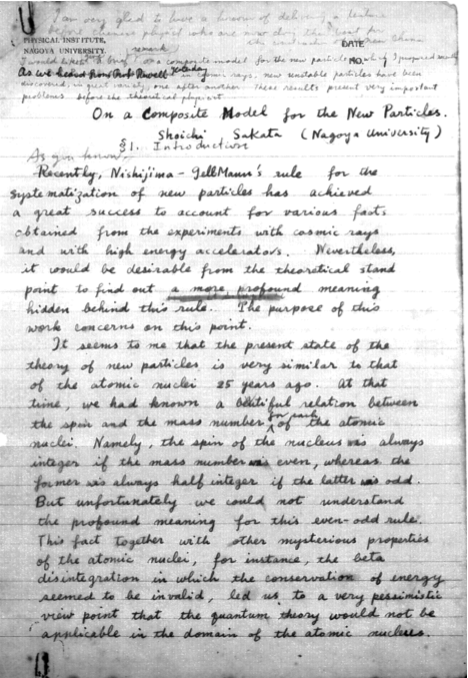 I am very glad to have a honour of deliver a lecture
before
PHYSICAL INSTITUTE,
NAGOYA UNIVERSITY.
DATE
190
remark
on a composite model for the new particles which I prepared
As we heard from Prof. Powell yesterday in cosmic rays, new unstable particles have been
discovered, in great variety, one after another. These results present very important
problems before the theoretical physicist
On a Composite Model for the New Particles.
Shoichi Sakata (Nagoya University)
§1. Introduction
As you know,
Recently, Nishijima - GellMann's rule for the
systematization of new particles has achieved
a great success to account for various facts
obtained from the experiments with cosmic rays
and with high energy accelerators. Nevertheless,
it would be desirable from the theoretical stand
point to find out a more profound meaning
hidden behind this rule. The purpose of this
work concerns on this point.
It seems to me that the present state of the
theory of new particles is very similar to that
of the atomic nuclei 25 years ago. At that
time, we had known a beutiful relation between
the spin and the mass number of the atomic
nuclei. Namely, the spin of the nucleus was always
integer if the mass number was even, whereas the
former was always half integer if the latter was odd.
But unfortunately we could not understand
the profound meaning for this even-odd rule.
This fact together with other mysterious properties
of the atomic nuclei, for instance, the beta
disintegration in which the conservation of energy
seemed to be invalid, led us to a very pessimistic
view point that the quantum theory would not be
applicable in the domain of the atomic nucleus.